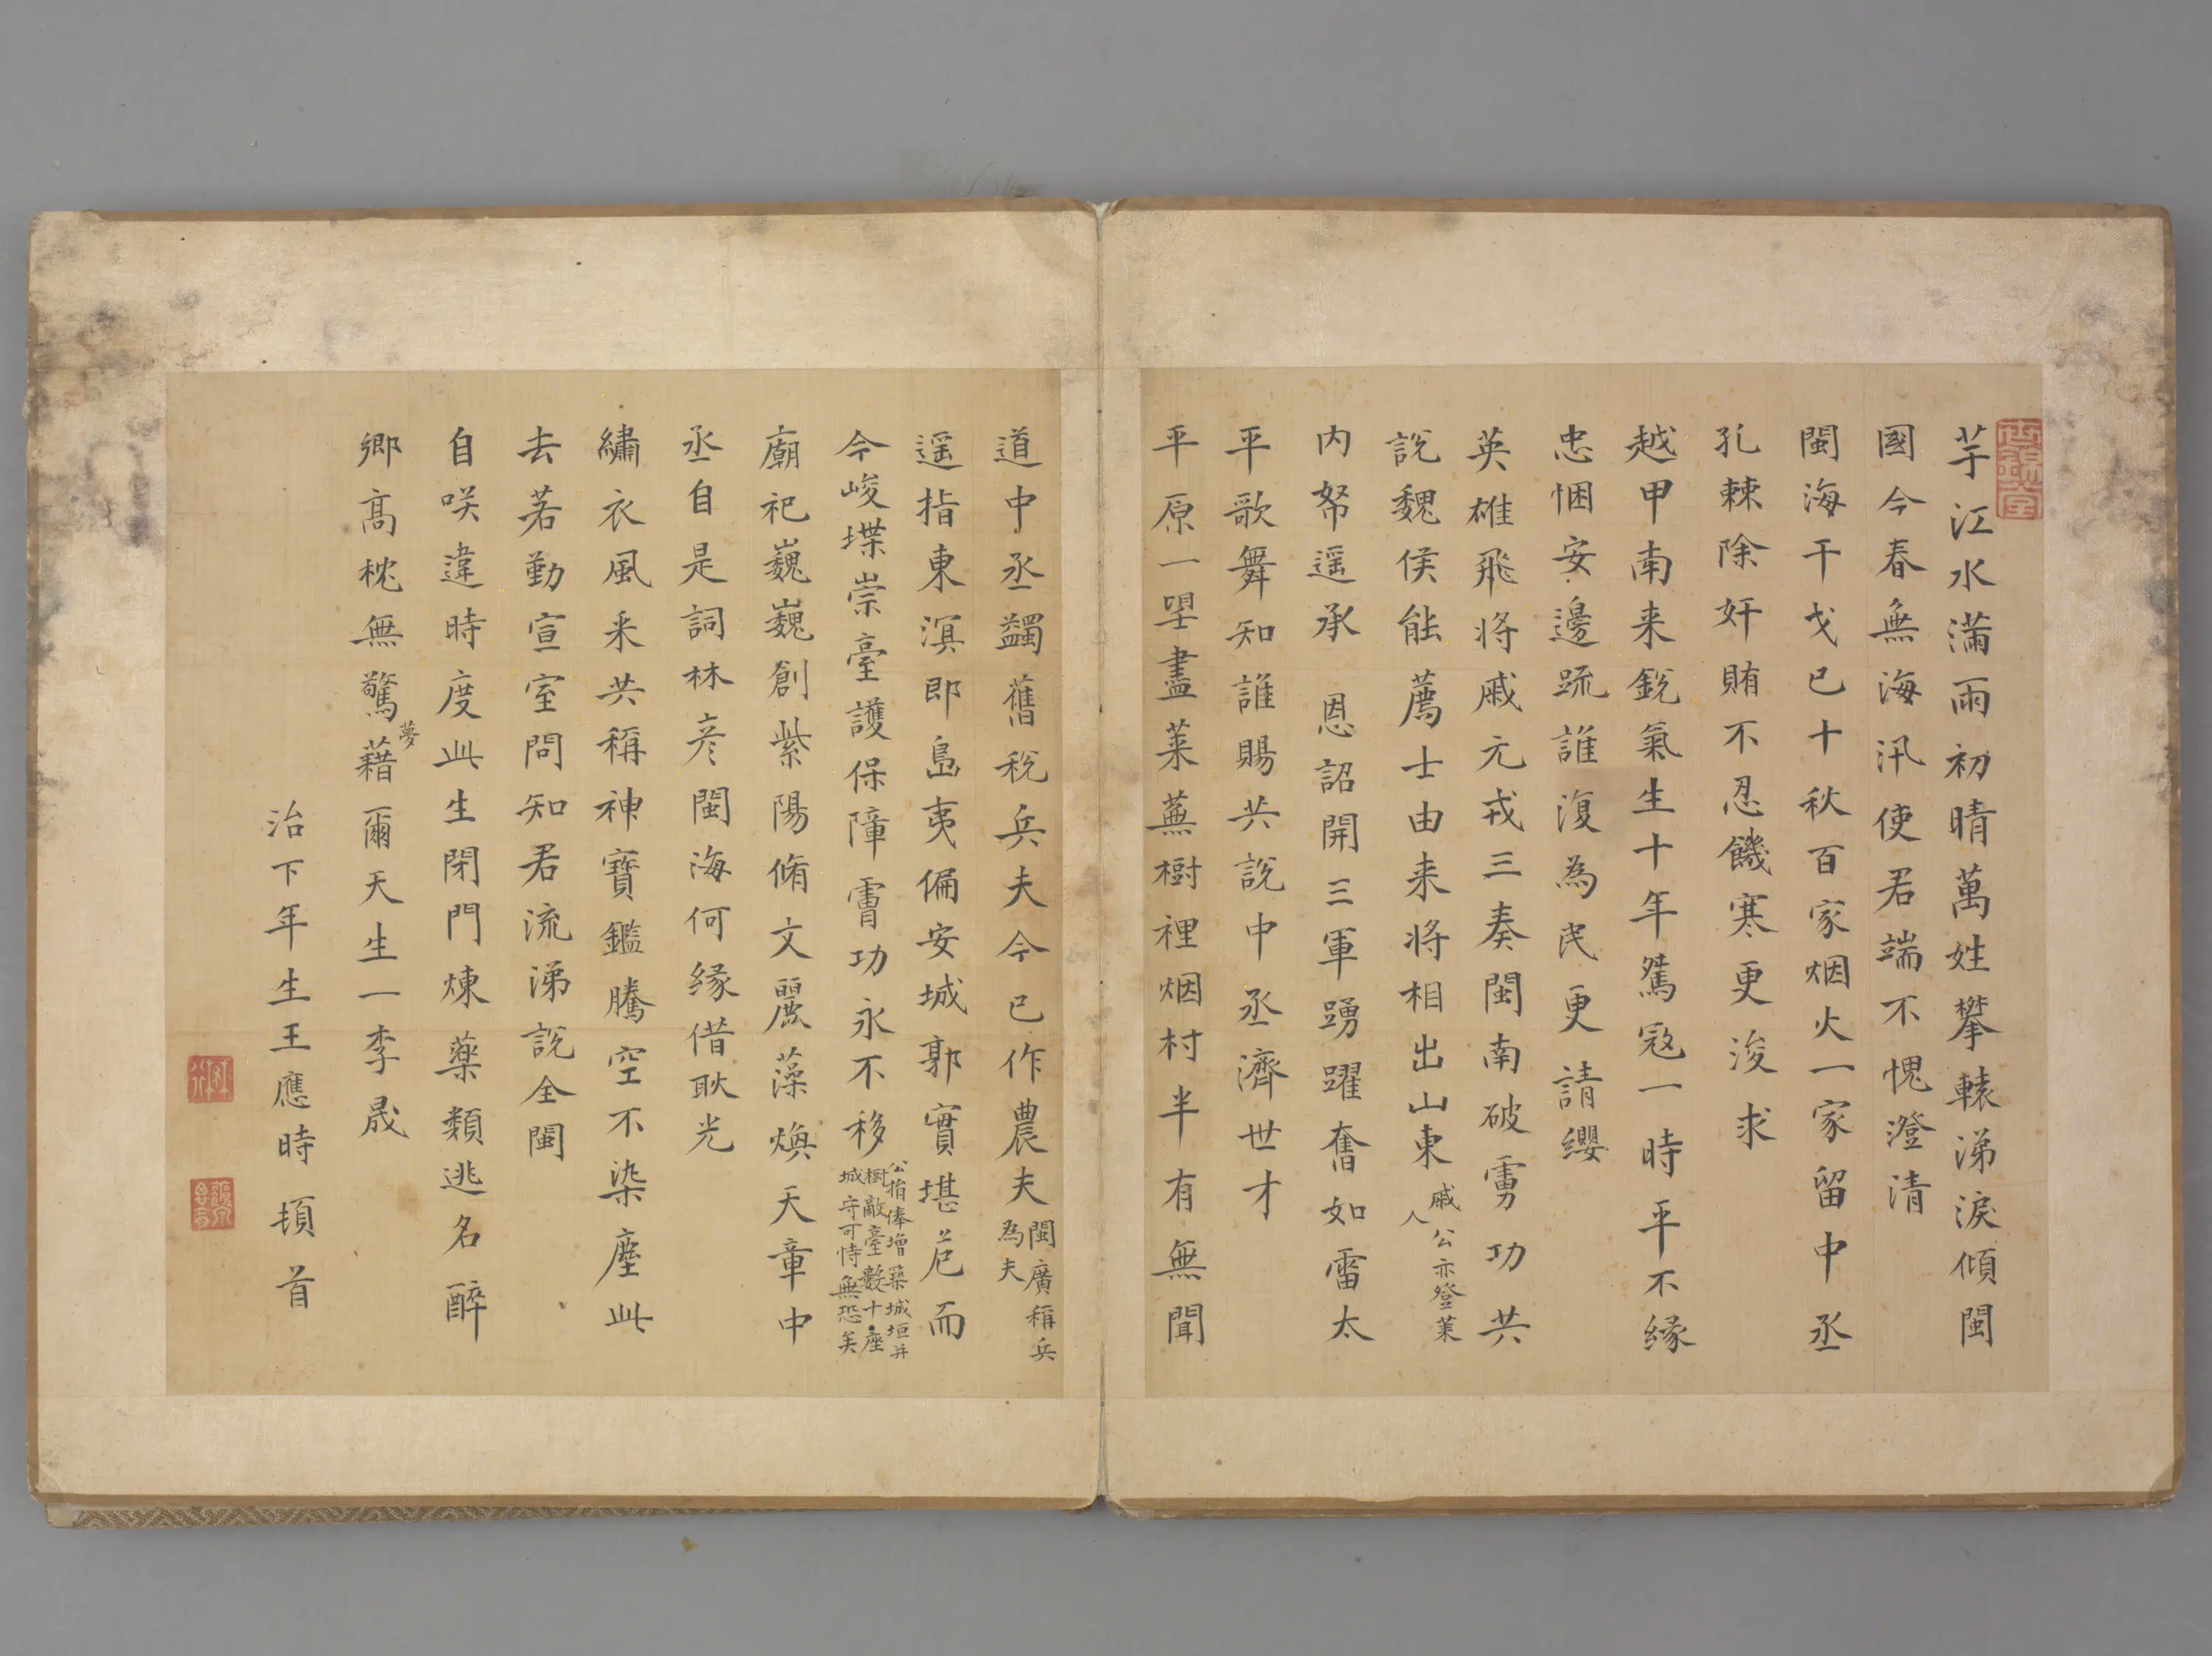 世錦堂
芋江水滿雨初晴萬姓攀轅涕淚傾閩
國今春無海汛使君端不愧澄清
閩海干戈已十秋百家烟火一家留中丞
孔棘除奸賄不忍饑寒更浚求
越甲南来銳氣生十年鴛寇一時平不緣
忠悃安邊疏誰復為民更請纓
英雄飛将戚元戎三奏閩南破虜功共
說魏侯能薦士由来将相出山東
戚公亦登莱
人
内帑遥承 恩詔開三軍踴躍奮如雷太
平歌舞知誰賜共說中丞濟世才
平原一望盡莱蕪樹裡烟村半有無聞
道中丞蠲舊稅兵夫今已作農夫
閩廣稱兵
為夫
遥指東溟即島夷偏安城郭實堪危而
今峻堞崇臺護保障膚功永不移
公捐俸增築城垣并
樹敵臺數十座
城守可恃無恐矣
廟祀巍巍創紫陽脩文麗藻煥天章中
丞自是詞林彦閩海何緣借耿光
繡衣風采共稱神寶鑑騰空不染塵此
去若勤宣室問知君流涕說全閩
自咲違時度此生閉門煉藥類逃名醉
鄉高枕無驚藉爾天生一李晟
夢
治下年生王應時 頓首